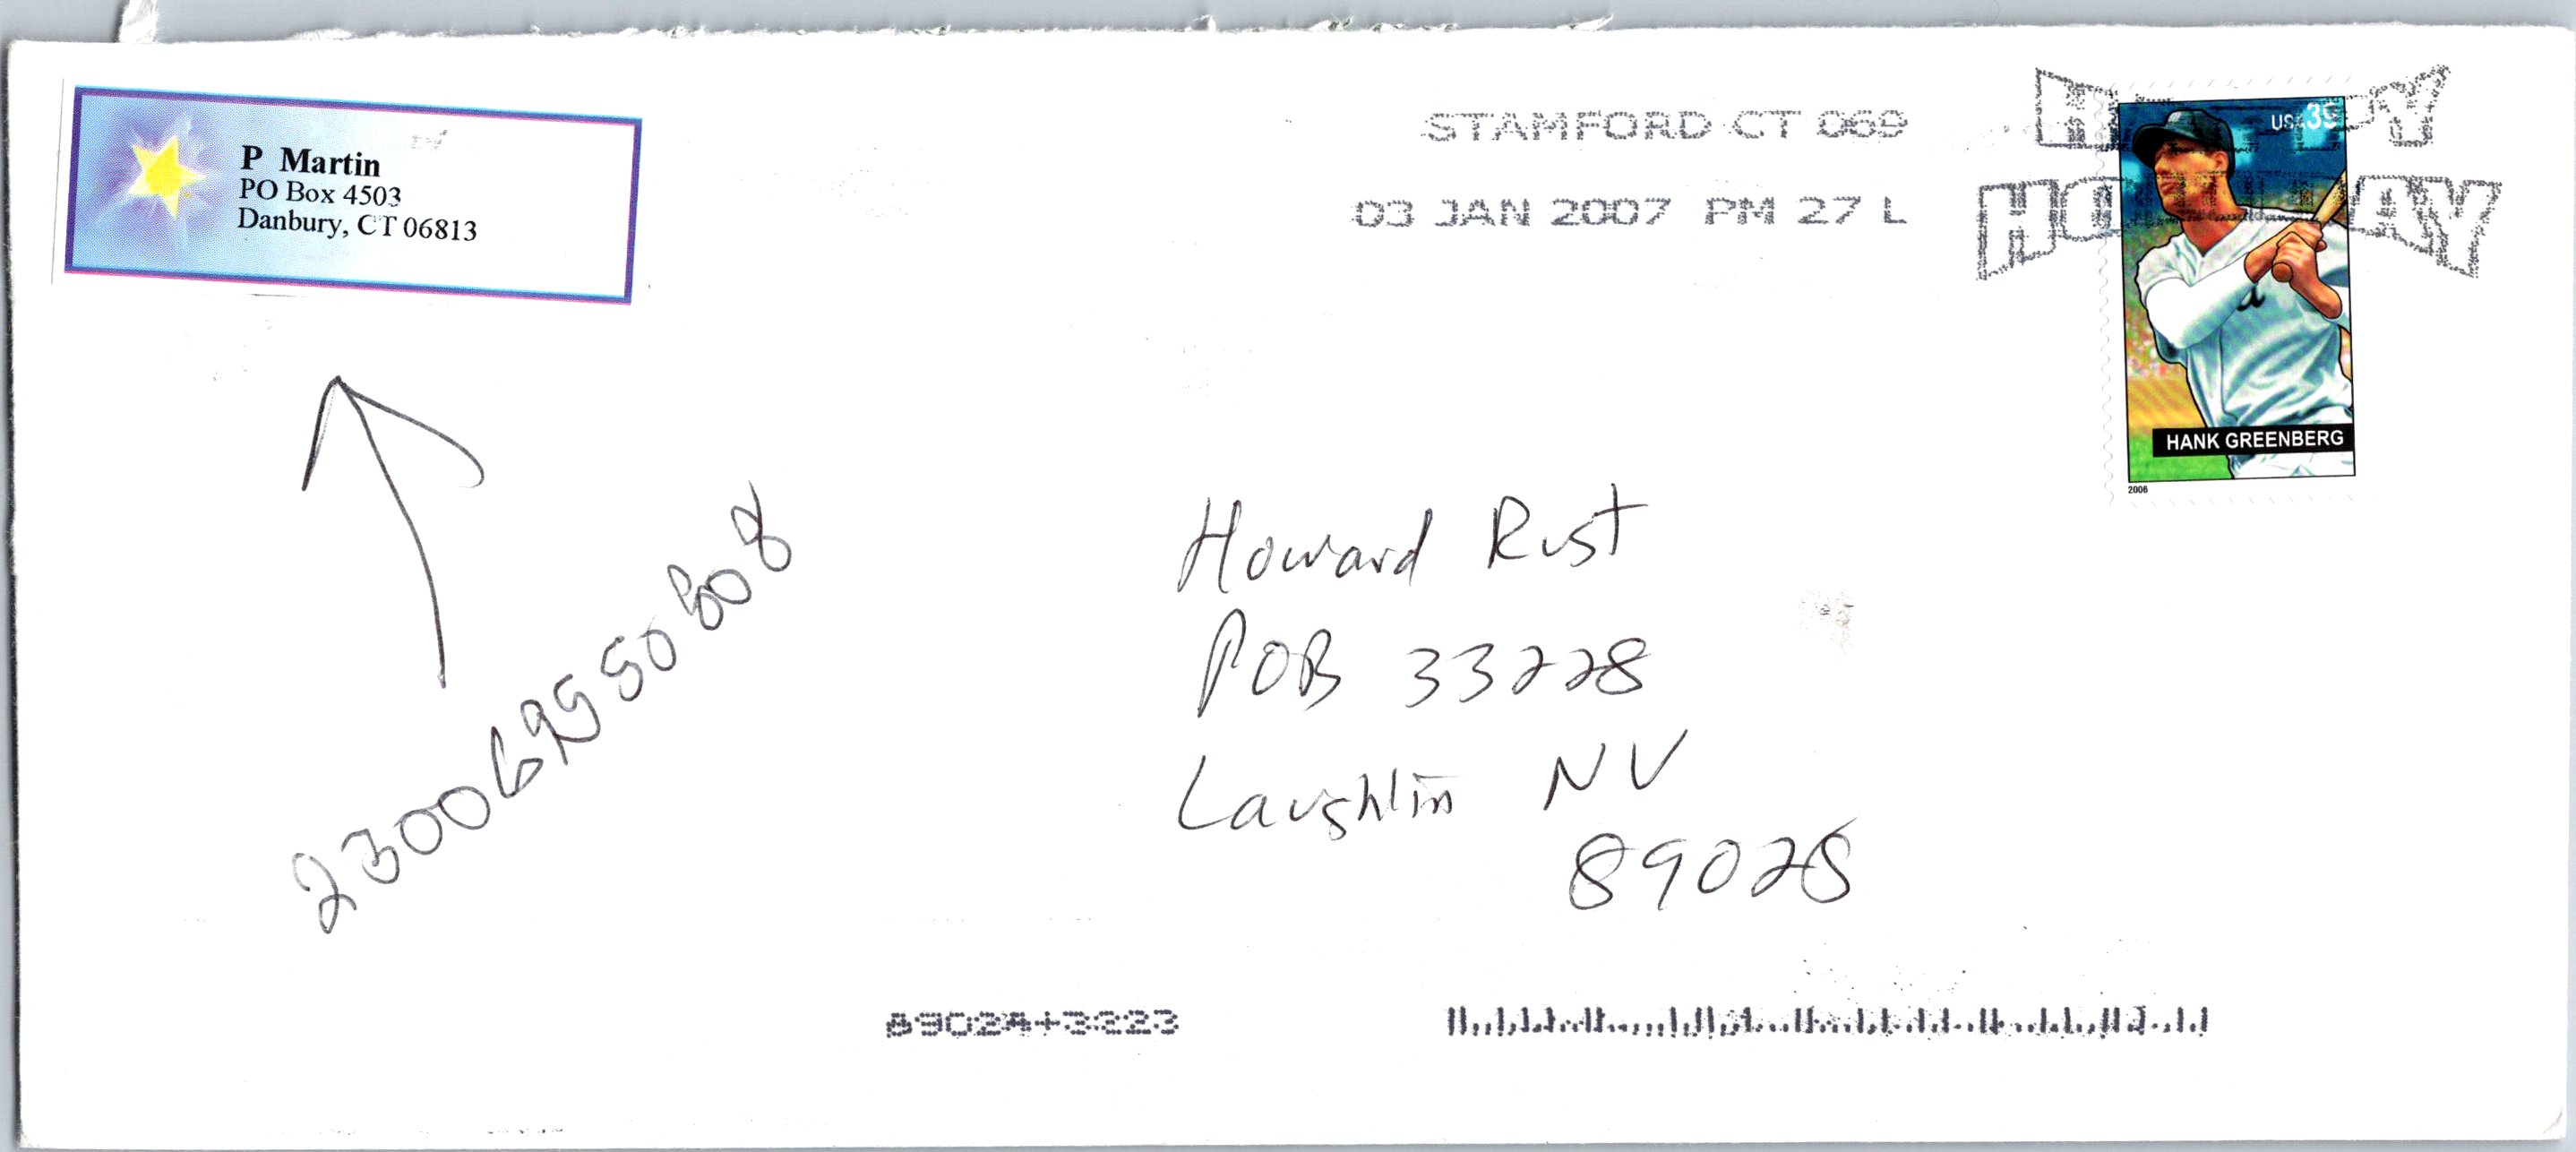 P Martin
PO Box 4503
Danbury, CT 06813
STAMFORD CT 069
03 JAN 2007 PM 27 L
HAPPY
HOLIDAY
USA 39
HANK GREENBERG
2006
Howard Rust
POB 33228
Laughlin NV
89028